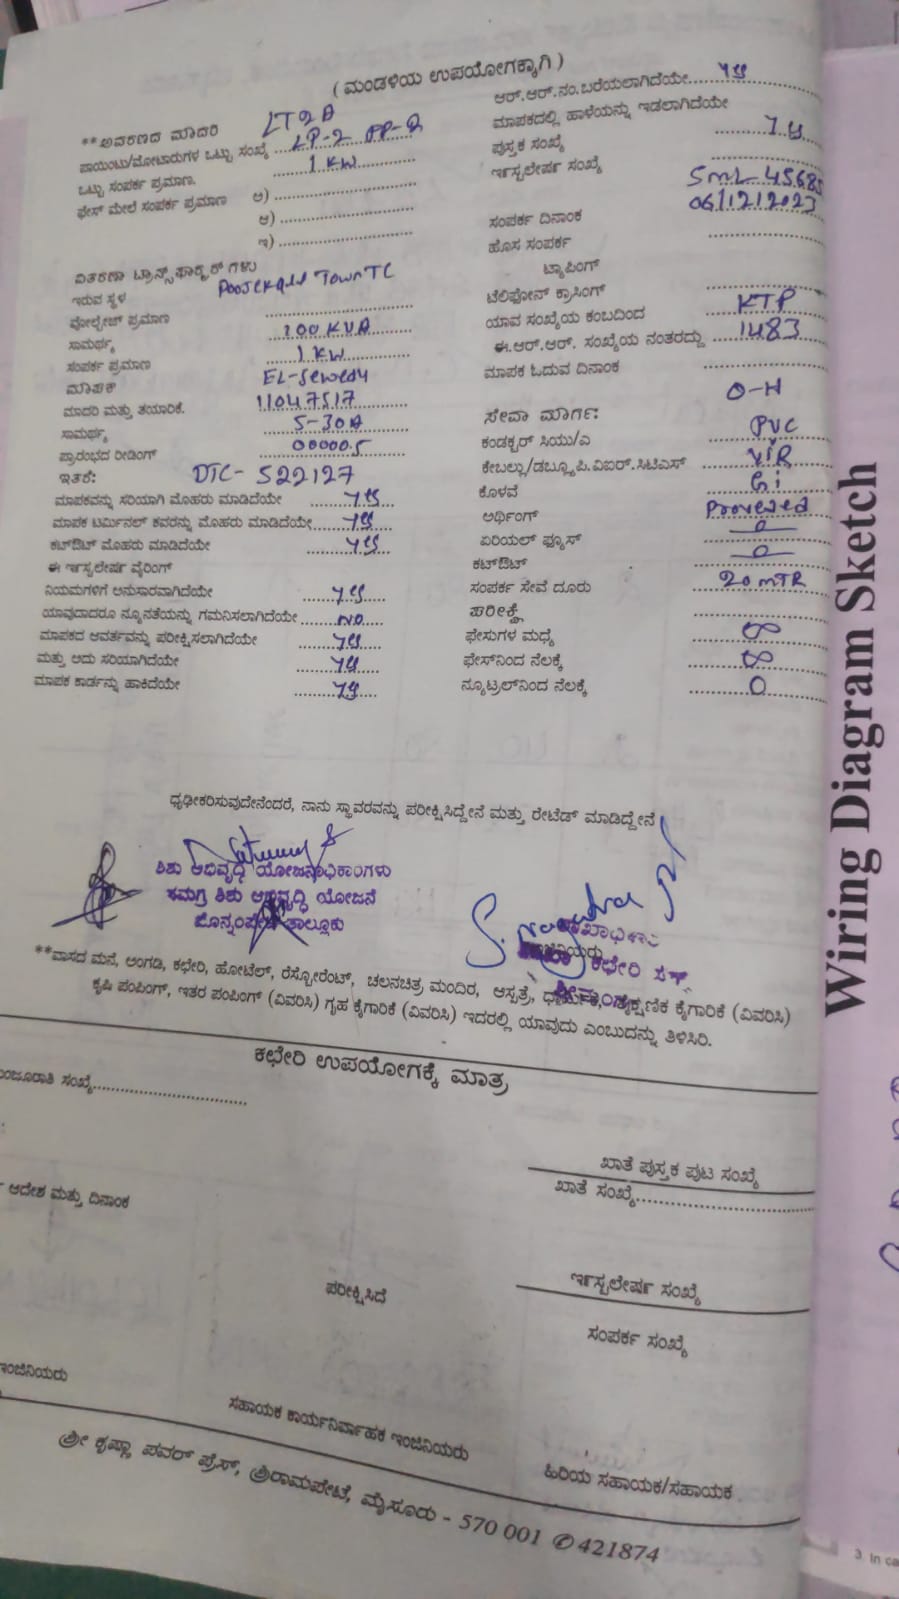 ( ಮಂಡಳಿಯ ಉಪಯೋಗಕ್ಕಾಗಿ )
**ಅವರಣದ ಮಾದರಿ LT2A
ಪಾಯಿಂಟು/ಮೋಟಾರುಗಳ ಒಟ್ಟು ಸಂಖ್ಯೆ LP-2 PP-2
ಒಟ್ಟು ಸಂಪರ್ಕ ಪ್ರಮಾಣ. 1 KW
ಫೇಸ್ ಮೇಲೆ ಸಂಪರ್ಕ ಪ್ರಮಾಣ ಅ)
ಆ)
ಇ)
ವಿತರಣಾ ಟ್ರಾನ್ಸ್‌ಫಾರ್ಮರ್‌ಗಳು
ಇರುವ ಸ್ಥಳ Town TC
ವೋಲ್ಟೇಜ್ ಪ್ರಮಾಣ
ಸಾಮರ್ಥ್ಯ 100 KVA
ಸಂಪರ್ಕ ಪ್ರಮಾಣ 1 KW
ಮಾಪಕ EL-Sewedy
ಮಾದರಿ ಮತ್ತು ತಯಾರಿಕೆ. 11047517
ಸಾಮರ್ಥ್ಯ 5-30A
ಪ್ರಾರಂಭದ ರೀಡಿಂಗ್ 00000.5
ಇತರೆ: DTC- 522127
ಮಾಪಕವನ್ನು ಸರಿಯಾಗಿ ಮೊಹರು ಮಾಡಿದೆಯೇ yes
ಮಾಪಕ ಟರ್ಮಿನಲ್ ಕವರನ್ನು ಮೊಹರು ಮಾಡಿದೆಯೇ yes
ಕಟ್‌ಔಟ್ ಮೊಹರು ಮಾಡಿದೆಯೇ yes
ಈ ಇನ್‌ಸ್ಟಲೇಷನ್ ವೈರಿಂಗ್
ನಿಯಮಗಳಿಗೆ ಅನುಸಾರವಾಗಿದೆಯೇ yes
ಯಾವುದಾದರೂ ನ್ಯೂನತೆಯನ್ನು ಗಮನಿಸಲಾಗಿದೆಯೇ NO
ಮಾಪಕದ ಆವರ್ತವನ್ನು ಪರೀಕ್ಷಿಸಲಾಗಿದೆಯೇ yes
ಮತ್ತು ಅದು ಸರಿಯಾಗಿದೆಯೇ yes
ಮಾಪಕ ಕಾರ್ಡನ್ನು ಹಾಕಿದೆಯೇ yes
ಆರ್.ಆರ್.ನಂ.ಬರೆಯಲಾಗಿದೆಯೇ yes
ಮಾಪಕದಲ್ಲಿ ಹಾಳೆಯನ್ನು ಇಡಲಾಗಿದೆಯೇ
ಪುಸ್ತಕ ಸಂಖ್ಯೆ yes
ಇನ್‌ಸ್ಟಲೇಷನ್ ಸಂಖ್ಯೆ
SML-45685
ಸಂಪರ್ಕ ದಿನಾಂಕ 06/12/2023
ಹೊಸ ಸಂಪರ್ಕ
ಟ್ಯಾಪಿಂಗ್
ಟೆಲಿಫೋನ್ ಕ್ರಾಸಿಂಗ್
ಯಾವ ಸಂಖ್ಯೆಯ ಕಂಬದಿಂದ KTP
ಈ.ಆರ್.ಆರ್. ಸಂಖ್ಯೆಯ ನಂತರದ್ದು 1483
ಮಾಪಕ ಓದುವ ದಿನಾಂಕ
ಸೇವಾ ಮಾರ್ಗ: O-H
ಕಂಡಕ್ಟರ್ ಸಿಯು/ಎ PVC
ಕೇಬಲ್ಲು/ಡಬ್ಲ್ಯೂ.ಪಿ.ವಿಐಆರ್.ಸಿಟಿಎಸ್ VIR
ಕೊಳವೆ Gi
ಅರ್ಥಿಂಗ್ Proveded
ಏರಿಯಲ್ ಫ್ಯೂಸ್ 0
ಕಟ್‌ಔಟ್ 0
ಸಂಪರ್ಕ ಸೇವೆ ದೂರು 20 MTR
ಪರೀಕ್ಷೆ
ಫೇಸುಗಳ ಮಧ್ಯೆ ∞
ಫೇಸ್‌ನಿಂದ ನೆಲಕ್ಕೆ ∞
ನ್ಯೂಟ್ರಲ್‌ನಿಂದ ನೆಲಕ್ಕೆ 0
ಧೃಢೀಕರಿಸುವುದೇನೆಂದರೆ, ನಾನು ಸ್ಥಾವರವನ್ನು ಪರೀಕ್ಷಿಸಿದ್ದೇನೆ ಮತ್ತು ರೇಟೆಡ್ ಮಾಡಿದ್ದೇನೆ
ಶಿಶು ಅಭಿವೃದ್ಧಿ ಯೋಜನಾಧಿಕಾರಿಗಳು
ಸಮಗ್ರ ಶಿಶು ಅಭಿವೃದ್ಧಿ ಯೋಜನೆ
ಪೊನ್ನಂಪೇಟೆ ತಾಲ್ಲೂಕು
**ವಾಸದ ಮನೆ, ಅಂಗಡಿ, ಕಛೇರಿ, ಹೋಟೆಲ್, ರೆಸ್ಟೋರೆಂಟ್, ಚಲನಚಿತ್ರ ಮಂದಿರ, ಆಸ್ಪತ್ರೆ, ಕೈಗಾರಿಕೆ (ವಿವರಿಸಿ)
ಕೃಷಿ ಪಂಪಿಂಗ್, ಇತರ ಪಂಪಿಂಗ್ (ವಿವರಿಸಿ) ಗೃಹ ಕೈಗಾರಿಕೆ (ವಿವರಿಸಿ) ಇದರಲ್ಲಿ ಯಾವುದು ಎಂಬುದನ್ನು ತಿಳಿಸಿರಿ.
ಕಛೇರಿ ಉಪಯೋಗಕ್ಕೆ ಮಾತ್ರ
ಮಂಜೂರಾತಿ ಸಂಖ್ಯೆ
ಖಾತೆ ಪುಸ್ತಕ ಪುಟ ಸಂಖ್ಯೆ
ಆದೇಶ ಮತ್ತು ದಿನಾಂಕ
ಖಾತೆ ಸಂಖ್ಯೆ
ಪರೀಕ್ಷಿಸಿದೆ
ಇನ್‌ಸ್ಟಲೇಷನ್ ಸಂಖ್ಯೆ
ಸಂಪರ್ಕ ಸಂಖ್ಯೆ
ಇಂಜಿನಿಯರು
ಸಹಾಯಕ ಕಾರ್ಯನಿರ್ವಾಹಕ ಇಂಜಿನಿಯರು
ಹಿರಿಯ ಸಹಾಯಕ/ಸಹಾಯಕ
ಶ್ರೀ ಕೃಷ್ಣಾ ಪವರ್ ಪ್ರೆಸ್, ಶ್ರೀರಾಮಪೇಟೆ, ಮೈಸೂರು - 570 001 ✆ 421874
Wiring Diagram Sketch
3. In ca